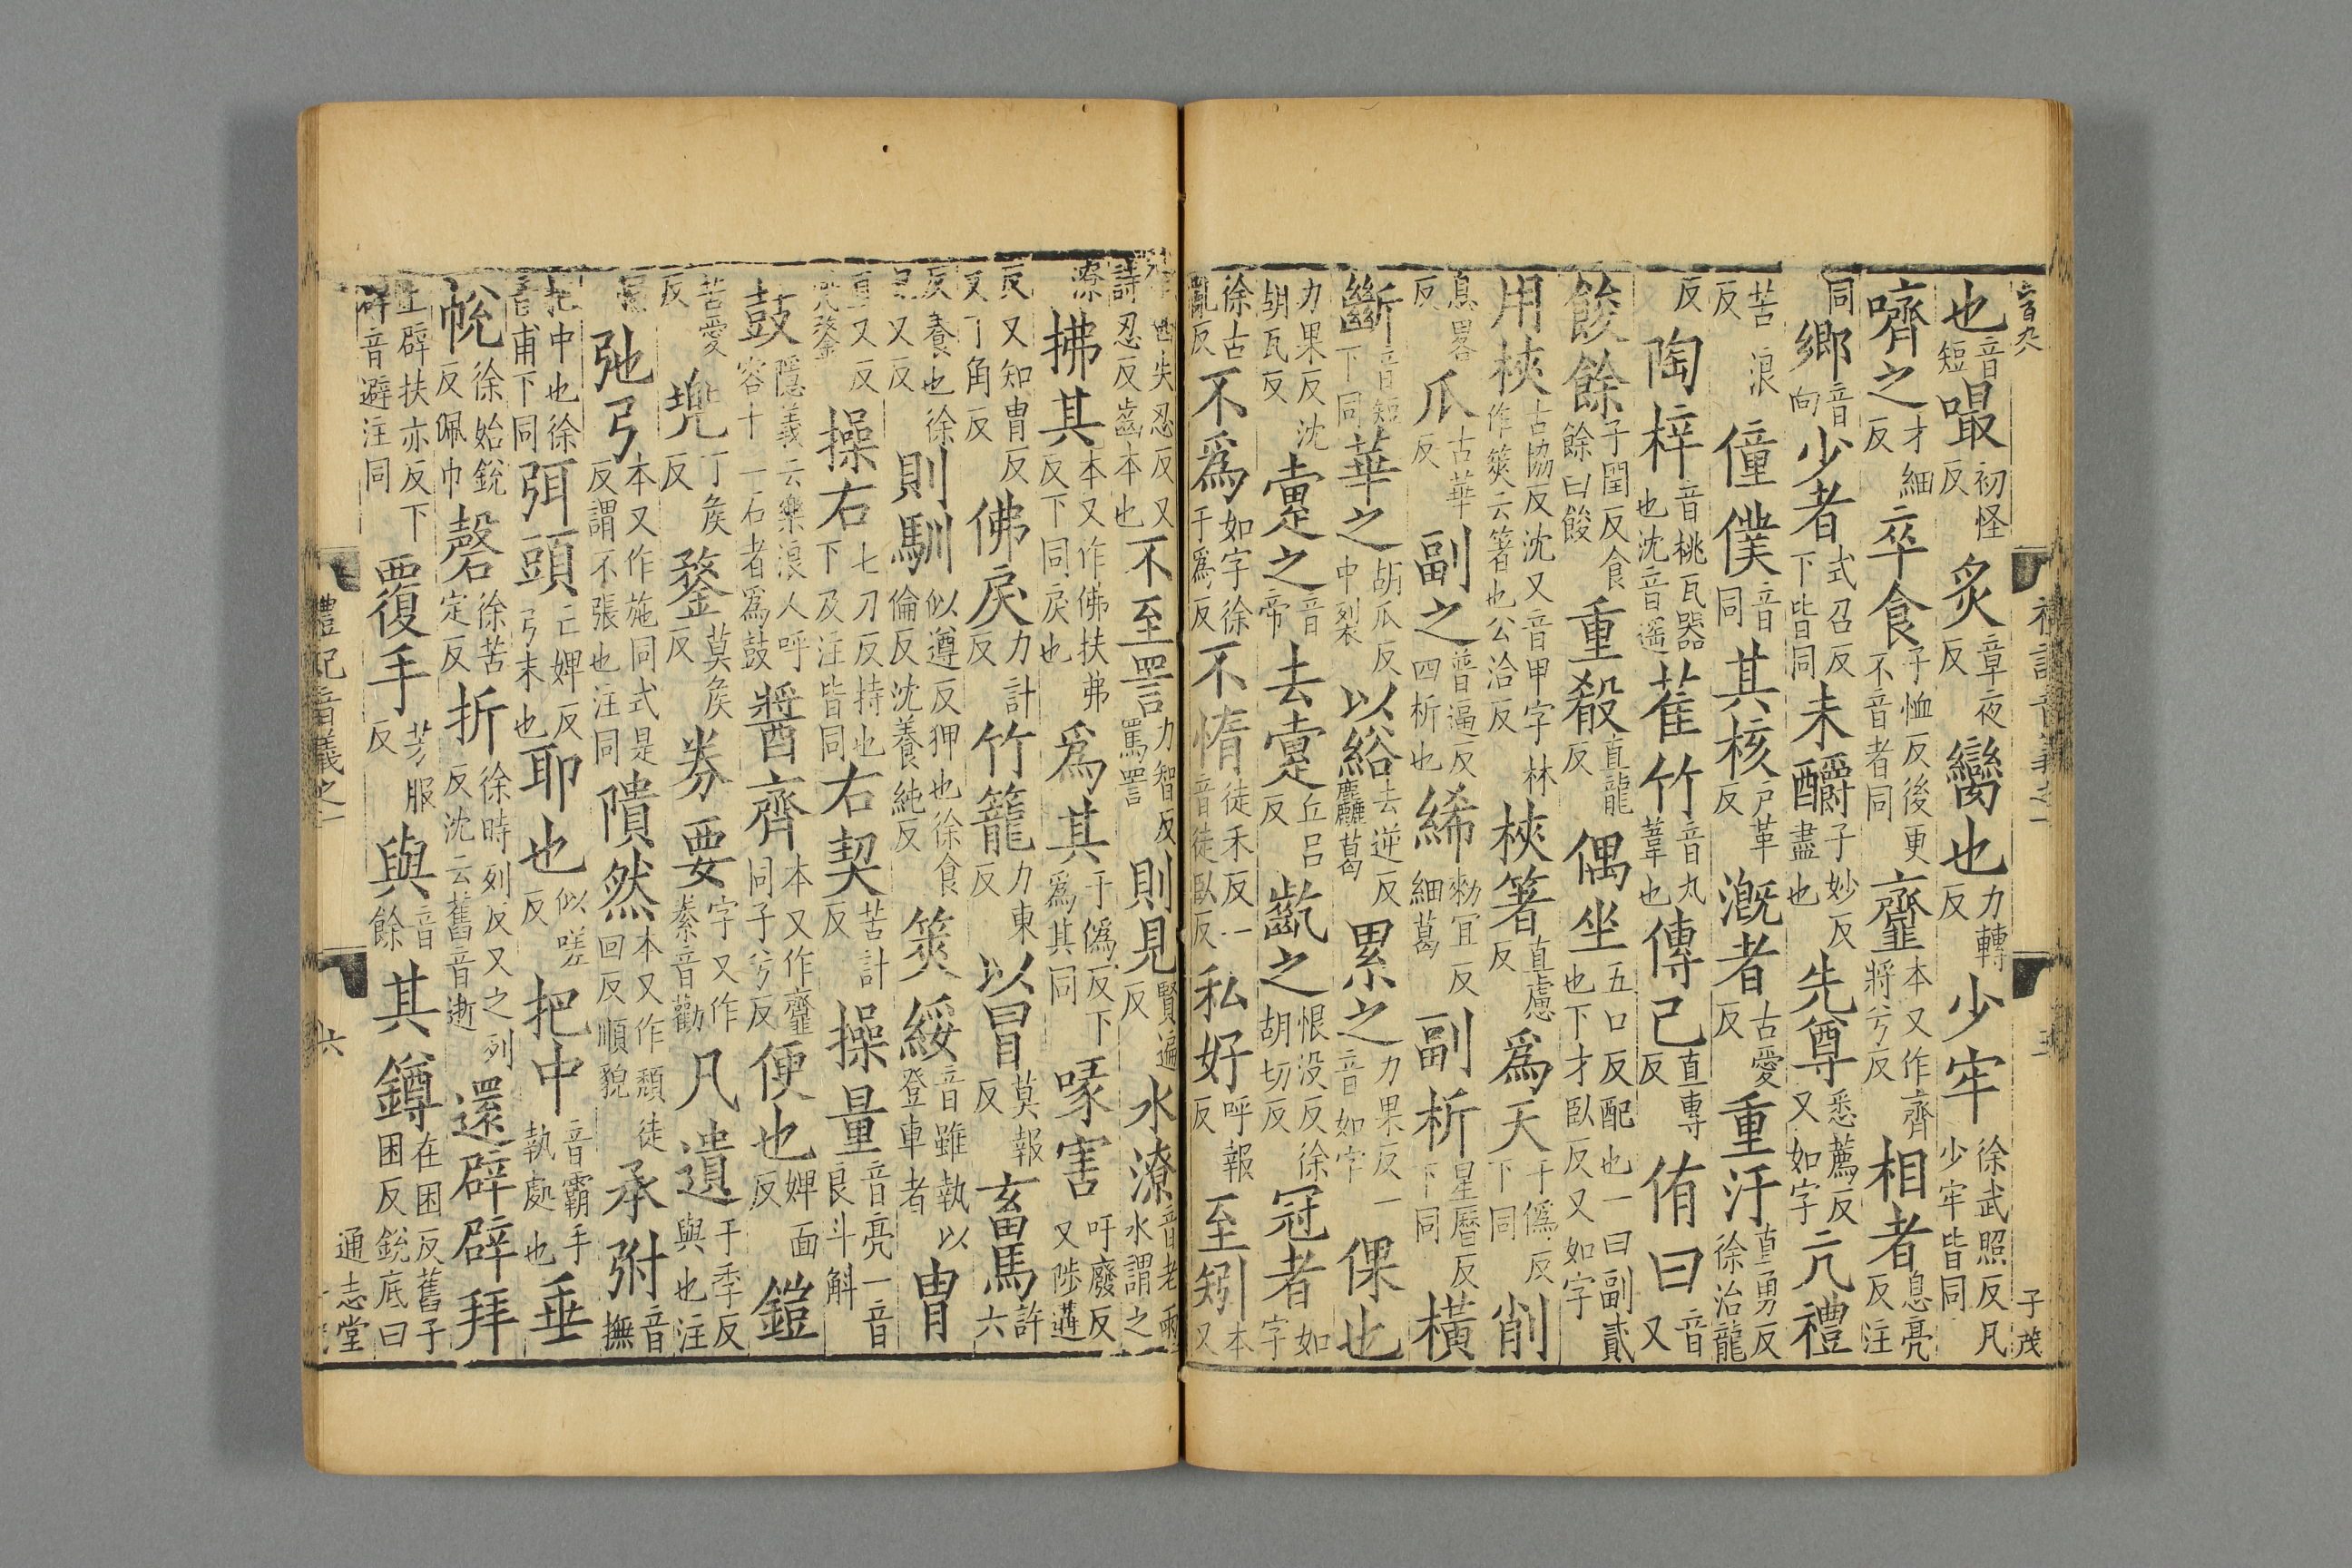 也音短嘬初怪反炙章夜反臠也力轉反少牢徐武照反凡少牢皆同
嚌之才細反卒食子恤反後更不音者同齏本又作齊將兮反相者息亮反注
同鄉音向少者式召反下皆同未釂子妙反盡也先尊悉薦反又如字亢禮
苦浪反僮僕音同其核戶革反溉者古愛反重汙直勇反徐治龍
反陶梓音桃瓦器也沈音遙萑竹音丸葦也傳己直專反侑曰音又
餕餘子閏反食餘曰餕重殺直龍反偶坐五口反配也一曰副貳也下才臥反又如字
用梜古協反沈又音甲字林作筴云箸也公洽反梜箸直慮反為天于偽反下同削
息畧反瓜古華反副之普逼反四析也絺勑宜反細葛副析星曆反下同橫
斷音短下同華之胡瓜反中裂以綌去逆反麤葛累之力果反一音如字倮也
力果反沈胡瓦反疐之音帝去疐丘呂反齕之恨沒反徐胡切反冠者如字
徐古亂反不為如字徐于為反不惰徒禾反一音徒臥反私好呼報反至矧本又
作哂失忍反又詩忍反齒本也不至詈力智反罵詈則見賢遍反水潦音老雨水謂之
潦拂其本又作佛扶弗反下同戾也為其于偽反下為其同喙害吁廢反又陟遘
反又知胄反又丁角反佛戾力計反竹籠力東反以冒莫報反畜馬許六
反養也徐又反則馴似遵反狎也徐食倫反沈養純反筴綏音雖執以登車者胄
直又反兜鍪操右七刀反持也下及注皆同右契苦計反操量音亮一音良斗斛
鼓隱義云樂浪人呼容十二石者為鼓醬齊本又作齏同子兮反便也婢面反鎧
苦愛反兜丁侯反鍪莫侯反券要字又作絭音勸凡遺于季反與也注
同弛弓本又作施同式是反謂不張也注同隤然本又作頹徒回反順貌承弣音撫
把中也徐音甫下同弭頭亡婢反弓末也耶也似嗟反把中音霸手執處也垂
帨徐始銳反佩巾磬徐苦定反折徐時列反又之列反沈云舊音逝還辟辟拜
上辟扶亦反下辟音避注同覆手芳服反與音餘其鐏在困反舊子困反銳底曰
禮記音義之一
六
通志堂